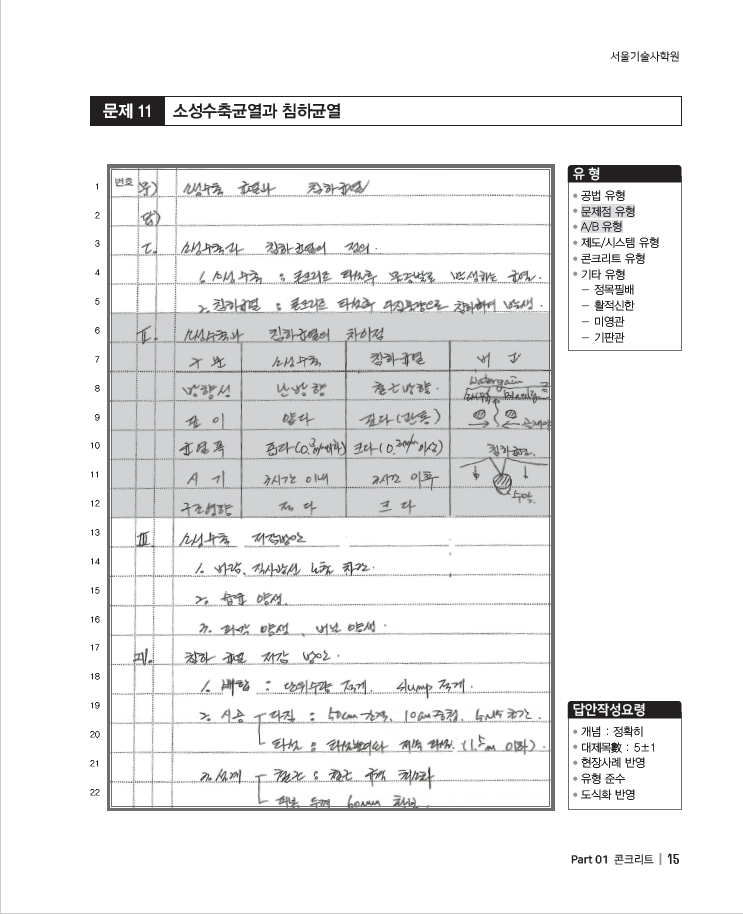 서울기술사학원
문제 11 소성수축균열과 침하균열
번호 문) 소성수축 균열과 침하균열
1
2 답)
3 I. 소성수축과 침하균열의 정의.
4 1. 소성수축 : 콘크리트 타설후 수분증발로 발생하는 균열.
5 2. 침하균열 : 콘크리트 타설후 다짐불량으로 침하하며 발생.
6 II. 소성수축과 침하균열의 차이점
7 구분 소성수축 침하균열 비고
8 방향성 난방향 철근방향. Watergain
9 깊이 얕다 깊다(관통)
10 균열폭 크다(0.2mm이상) 침하균열.
11 시기 3시간 이내 3시간 이후
12 구조영향 적다 크다 수막.
13 III. 소성수축 저감방안
14 1. 바람, 직사광선 노출 차단.
15 2. 습윤 양생.
16 3. 피막 양생, 비닐 양생.
17 IV. 침하 균열 저감 방안.
18 1. 배합 : 단위수량 적게, slump 적게.
19 2. 시공 다짐 : 50cm 간격, 10cm 중첩, 5~15초간.
20 타설 : 타설높이 (1.5m 이하).
21 3. 설계 철근 : 철근
22 피복 두께 60mm 확보.
유 형
• 공법 유형
• 문제점 유형
• A/B 유형
• 제도/시스템 유형
• 콘크리트 유형
• 기타 유형
– 정목필배
– 활적신한
– 미영관
– 기판관
답안작성요령
• 개념 : 정확히
• 대제목數 : 5±1
• 현장사례 반영
• 유형 준수
• 도식화 반영
Part 01 콘크리트 | 15